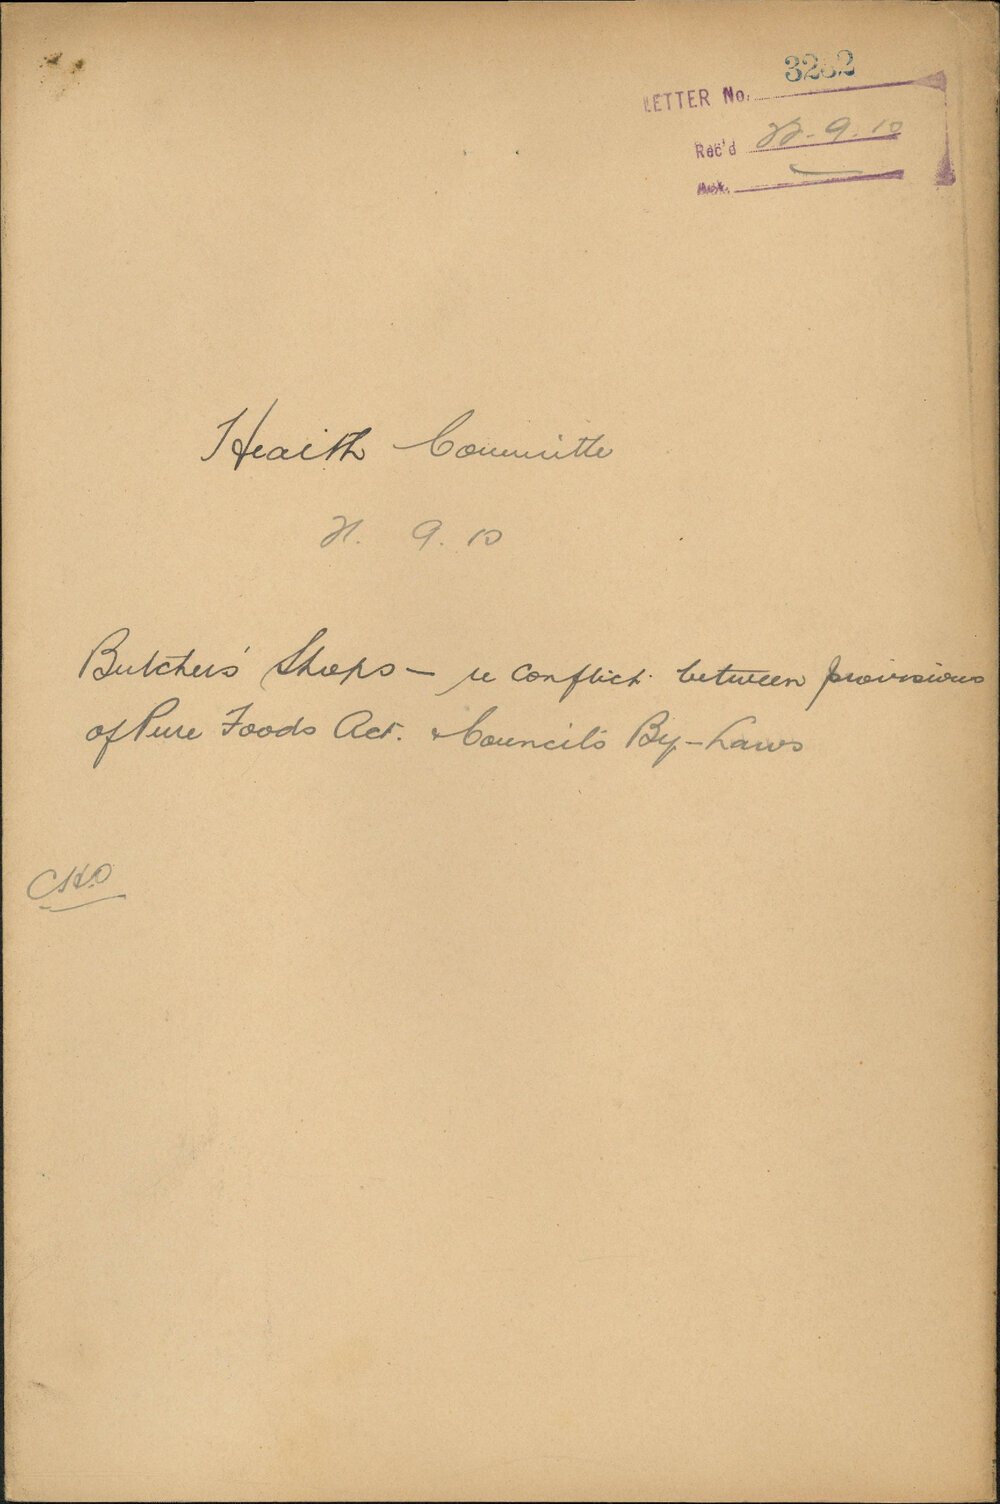 LETTER No. 3282
Rec'd 22.9.10
Health Committe
21. 9. 10
Butchers' Shops — re conflict between provisions
of Pure Foods Act. & Council's By-Laws